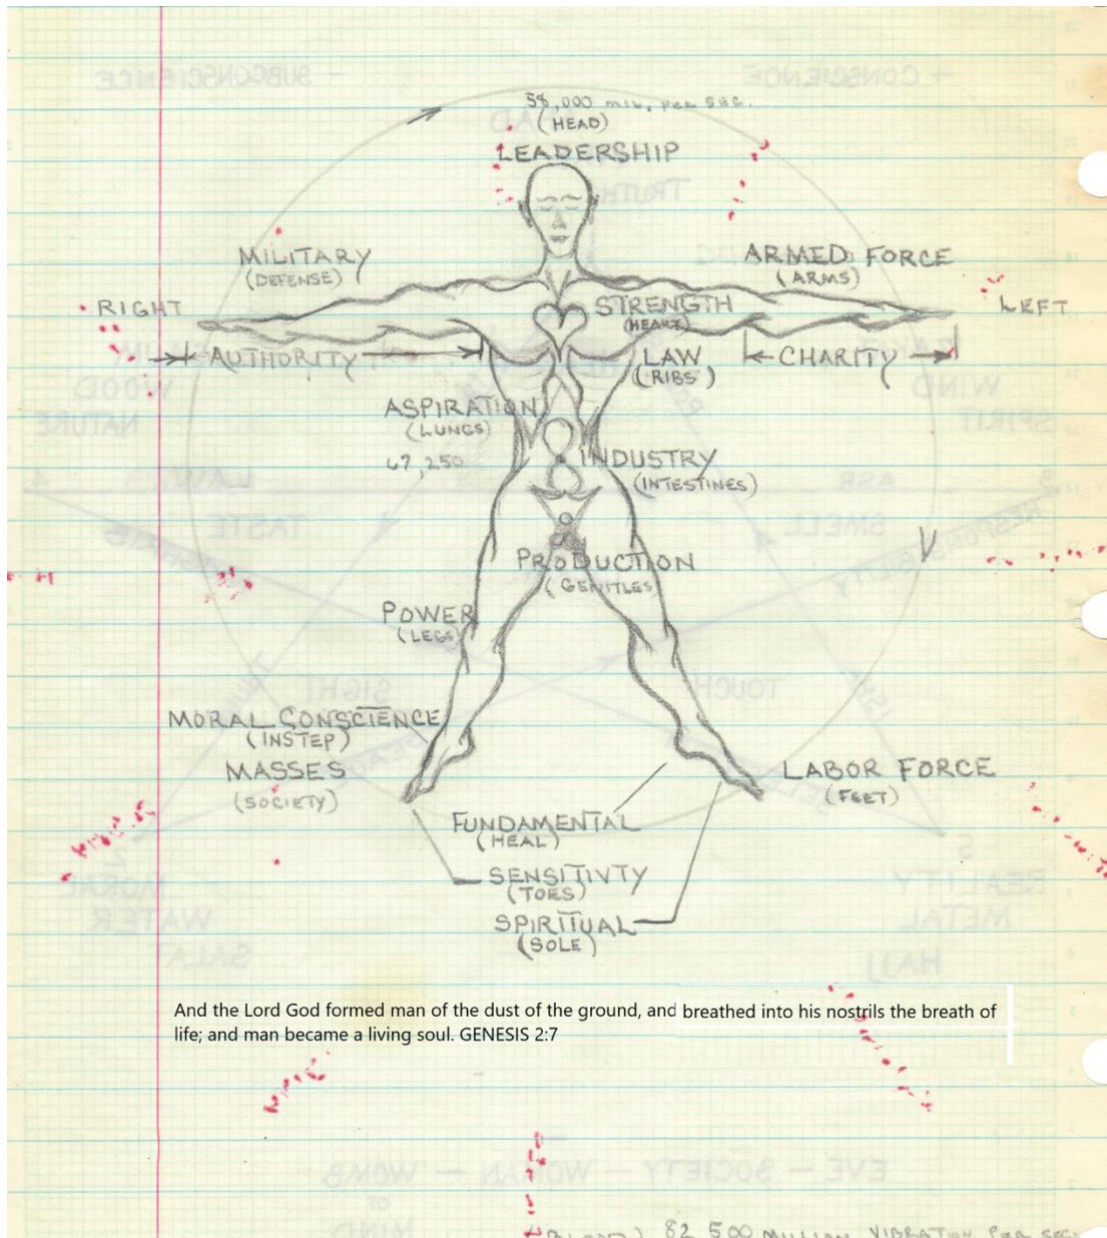 58,000 mil. per sec.
(HEAD)
LEADERSHIP
MILITARY
(DEFENSE)
ARMED FORCE
(ARMS)
RIGHT
STRENGTH
(HEART)
LEFT
AUTHORITY
LAW
(RIBS)
CHARITY
ASPIRATION
(LUNGS)
67,250
INDUSTRY
(INTESTINES)
PRODUCTION
(GENITLES)
POWER
(LEGS)
MORAL CONSCIENCE
(INSTEP)
MASSES
(SOCIETY)
LABOR FORCE
(FEET)
FUNDAMENTAL
(HEAL)
SENSITIVTY
(TOES)
SPIRITUAL
(SOLE)
And the Lord God formed man of the dust of the ground, and breathed into his nostrils the breath of
life; and man became a living soul. GENESIS 2:7
82,500 MILLION VIBRATION PER